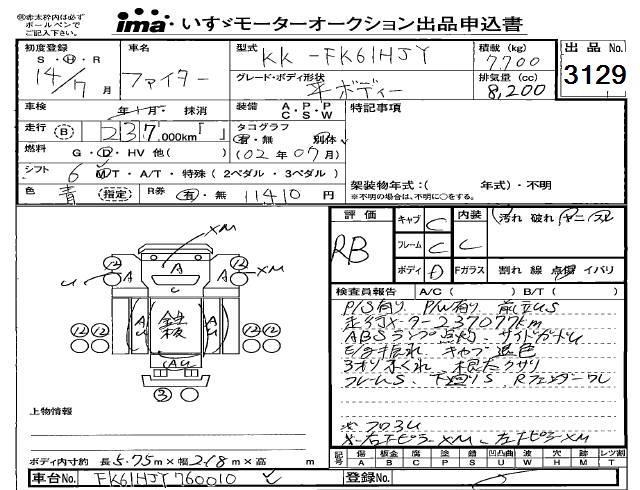 ※赤太枠内は必ずボールペンでご記入下さい。
ima いすゞモーターオークション出品申込書
初度登録 S・H・R 14/7月
車名 ファイター
型式 KK-FK61HJY
積載 (kg) 7,700
グレード・ボディ形状 平ボディー
排気量 (cc) 8,200
出品 No. 3129
車検 年 月 抹消
装備 A・P・P C・S・W
特記事項
走行 (B) 237,000km「 」
タコグラフ 有・無 別体
(02年07月)
燃料 G・D・HV 他( )
シフト 6 MT・A/T・特殊(2ペダル・3ペダル)
色 青 (指定)
R券 有・無 11410円
架装物年式:( 年式)・不明
※不明の場合は、不明に○をする。
評価 RB
キャブ C
内装 汚れ 破れ ヤニ スレ
フレーム C C
ボディ D
Fガラス 割れ 線 点傷 イバリ
検査員報告 A/C( ) B/T( )
P/S有り P/W有り 前立US
走行メーター237077km
ABSランプ点灯、サイドガードU
キャブ退色
フレームS、下廻りS Rフェンダーワレ
※フロ3U
※右下ピラーXM、左下ピラーXM
XM
⑫ A ⑫
U A U XM
A U 鉄板 A U
⑫⑫ ⑫⑫
AU
③
上物情報
ボディ内寸約 長5.75m×幅2.18m×高 m
記号 傷 A 板金 B 腐 C 塗 P 錆 S 凹凸曲 U 波 W 穴 H 跡 M レツ割 T
車台No. FK61HJY760010
登録No.